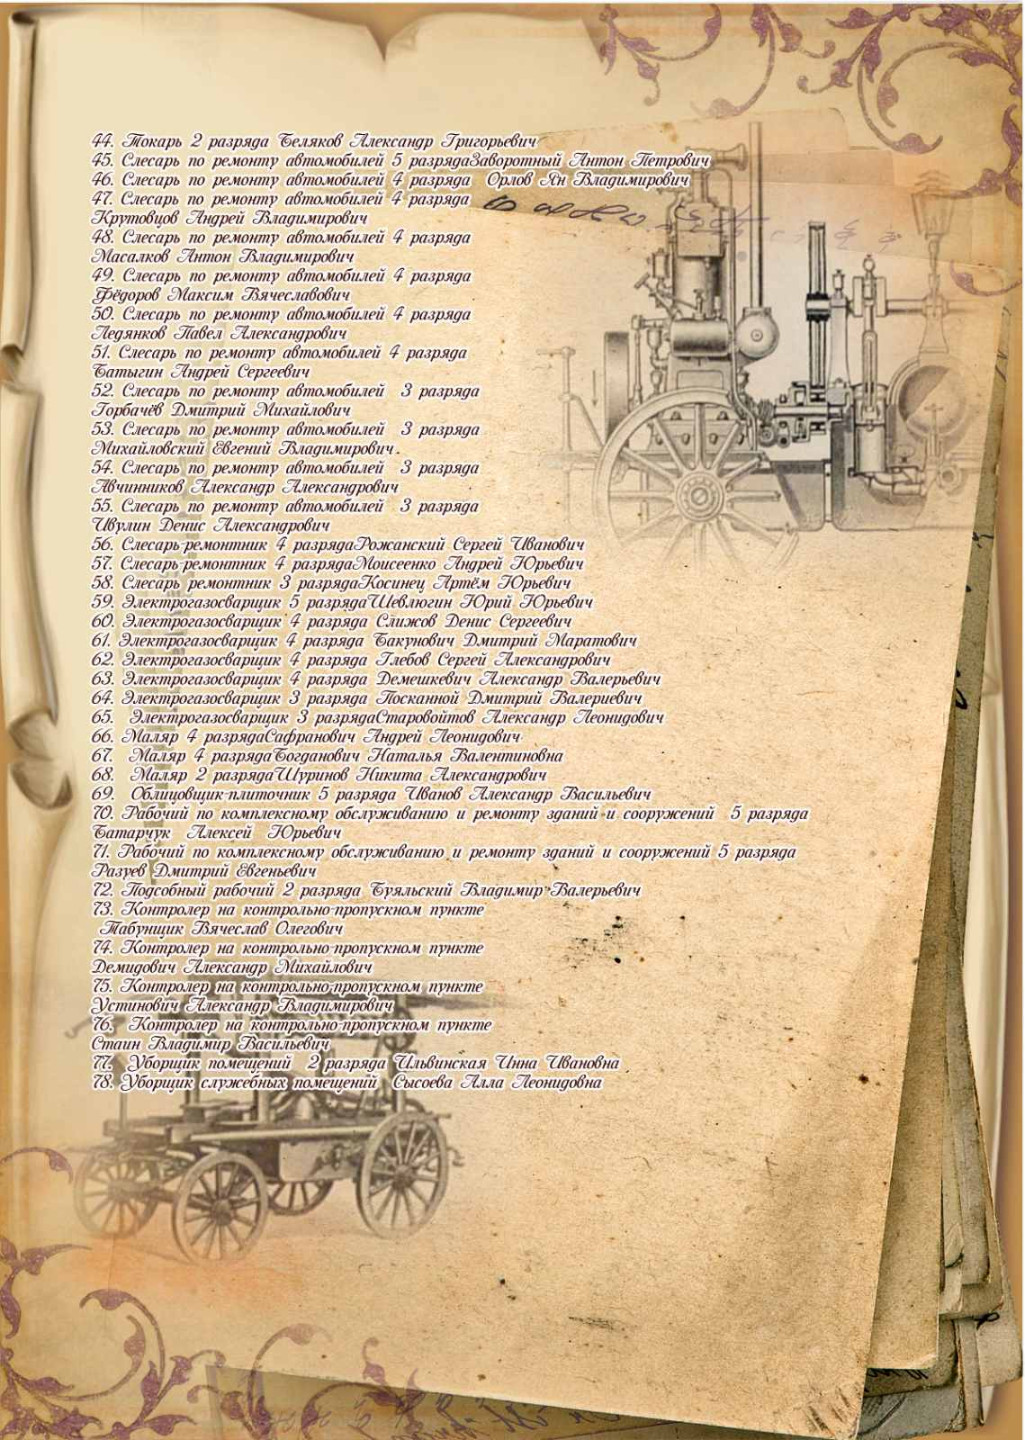 44. Токарь 2 разряда Беляков Александр Григорьевич
45. Слесарь по ремонту автомобилей 5 разрядаЗаворотный Антон Петрович
46. Слесарь по ремонту автомобилей 4 разряда Орлов Ян Владимирович
47. Слесарь по ремонту автомобилей 4 разряда
Крутовцов Андрей Владимирович
48. Слесарь по ремонту автомобилей 4 разряда
Масалков Антон Владимирович
49. Слесарь по ремонту автомобилей 4 разряда
Фёдоров Максим Вячеславович
50. Слесарь по ремонту автомобилей 4 разряда
Ледянков Павел Александрович
51. Слесарь по ремонту автомобилей 4 разряда
Батыгин Андрей Сергеевич
52. Слесарь по ремонту автомобилей 3 разряда
Горбачёв Дмитрий Михайлович
53. Слесарь по ремонту автомобилей 3 разряда
Михайловский Евгений Владимирович.
54. Слесарь по ремонту автомобилей 3 разряда
Авчинников Александр Александрович
55. Слесарь по ремонту автомобилей 3 разряда
Ивулин Денис Александрович
56. Слесарь-ремонтник 4 разрядаРожанский Сергей Иванович
57. Слесарь-ремонтник 4 разрядаМоисеенко Андрей Юрьевич
58. Слесарь ремонтник 3 разрядаКосинец Артём Юрьевич
59. Электрогазосварщик 5 разрядаШевлюгин Юрий Юрьевич
60. Электрогазосварщик 4 разряда Слижов Денис Сергеевич
61. Электрогазосварщик 4 разряда Бакунович Дмитрий Маратович
62. Электрогазосварщик 4 разряда Глебов Сергей Александрович
63. Электрогазосварщик 4 разряда Демешкевич Александр Валерьевич
64. Электрогазосварщик 3 разряда Посканной Дмитрий Валериевич
65. Электрогазосварщик 3 разрядаСтаровойтов Александр Леонидович
66. Маляр 4 разрядаСафранович Андрей Леонидович
67. Маляр 4 разрядаБогданович Наталья Валентиновна
68. Маляр 2 разрядаШуринов Никита Александрович
69. Облицовщик-плиточник 5 разряда Иванов Александр Васильевич
70. Рабочий по комплексному обслуживанию и ремонту зданий и сооружений 5 разряда
Батарчук Алексей Юрьевич
71. Рабочий по комплексному обслуживанию и ремонту зданий и сооружений 5 разряда
Разуев Дмитрий Евгеньевич
72. Подсобный рабочий 2 разряда Буяльский Владимир Валерьевич
73. Контролер на контрольно-пропускном пункте
Табунщик Вячеслав Олегович
74. Контролер на контрольно-пропускном пункте
Демидович Александр Михайлович
75. Контролер на контрольно-пропускном пункте
Устинович Александр Владимирович
76. Контролер на контрольно-пропускном пункте
Стаин Владимир Васильевич
77. Уборщик помещений 2 разряда Ильвинская Инна Ивановна
78. Уборщик служебных помещений Сысоева Алла Леонидовна